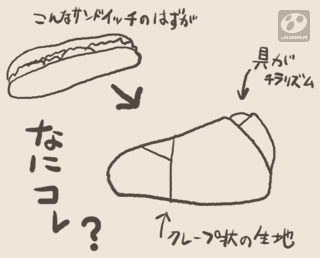 こんなサンドイッチのはずが
具が
チラリズム
なにコレ?
クレープ状の生地